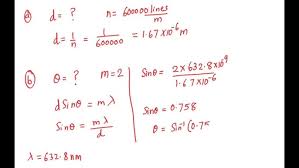 (a) d = ? n = 600000 lines/m
d = 1/n = 1/600000 = 1.67×10⁻⁶ m
(b) θ = ? m = 2
d Sinθ = m λ
Sinθ = m λ / d
λ = 632.8 nm
Sinθ = 2 × 632.8 × 10⁹ / 1.67 × 10⁻⁶
Sinθ = 0.758
θ = Sin⁻¹(0.75